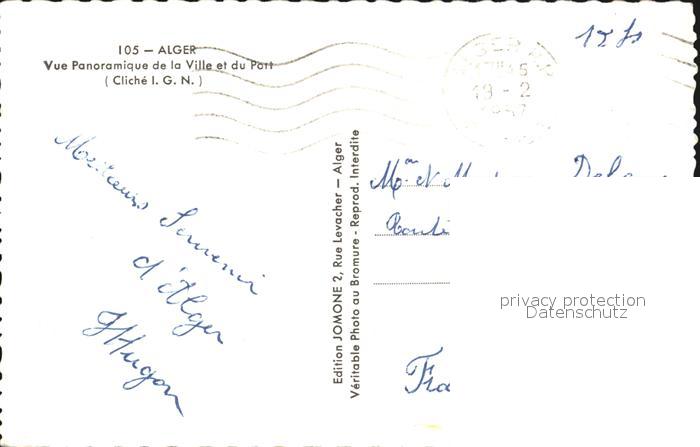 105 — ALGER
Vue Panoramique de la Ville et du Port
( Cliché I. G. N. )
12 fs
19 - 2
Meilleurs Souvenir
d'Alger
JHugon
Edition JOMONE 2, Rue Levacher — Alger
Véritable Photo au Bromure - Reprod. Interdite
Mr et M
Fra
privacy protection
Datenschutz